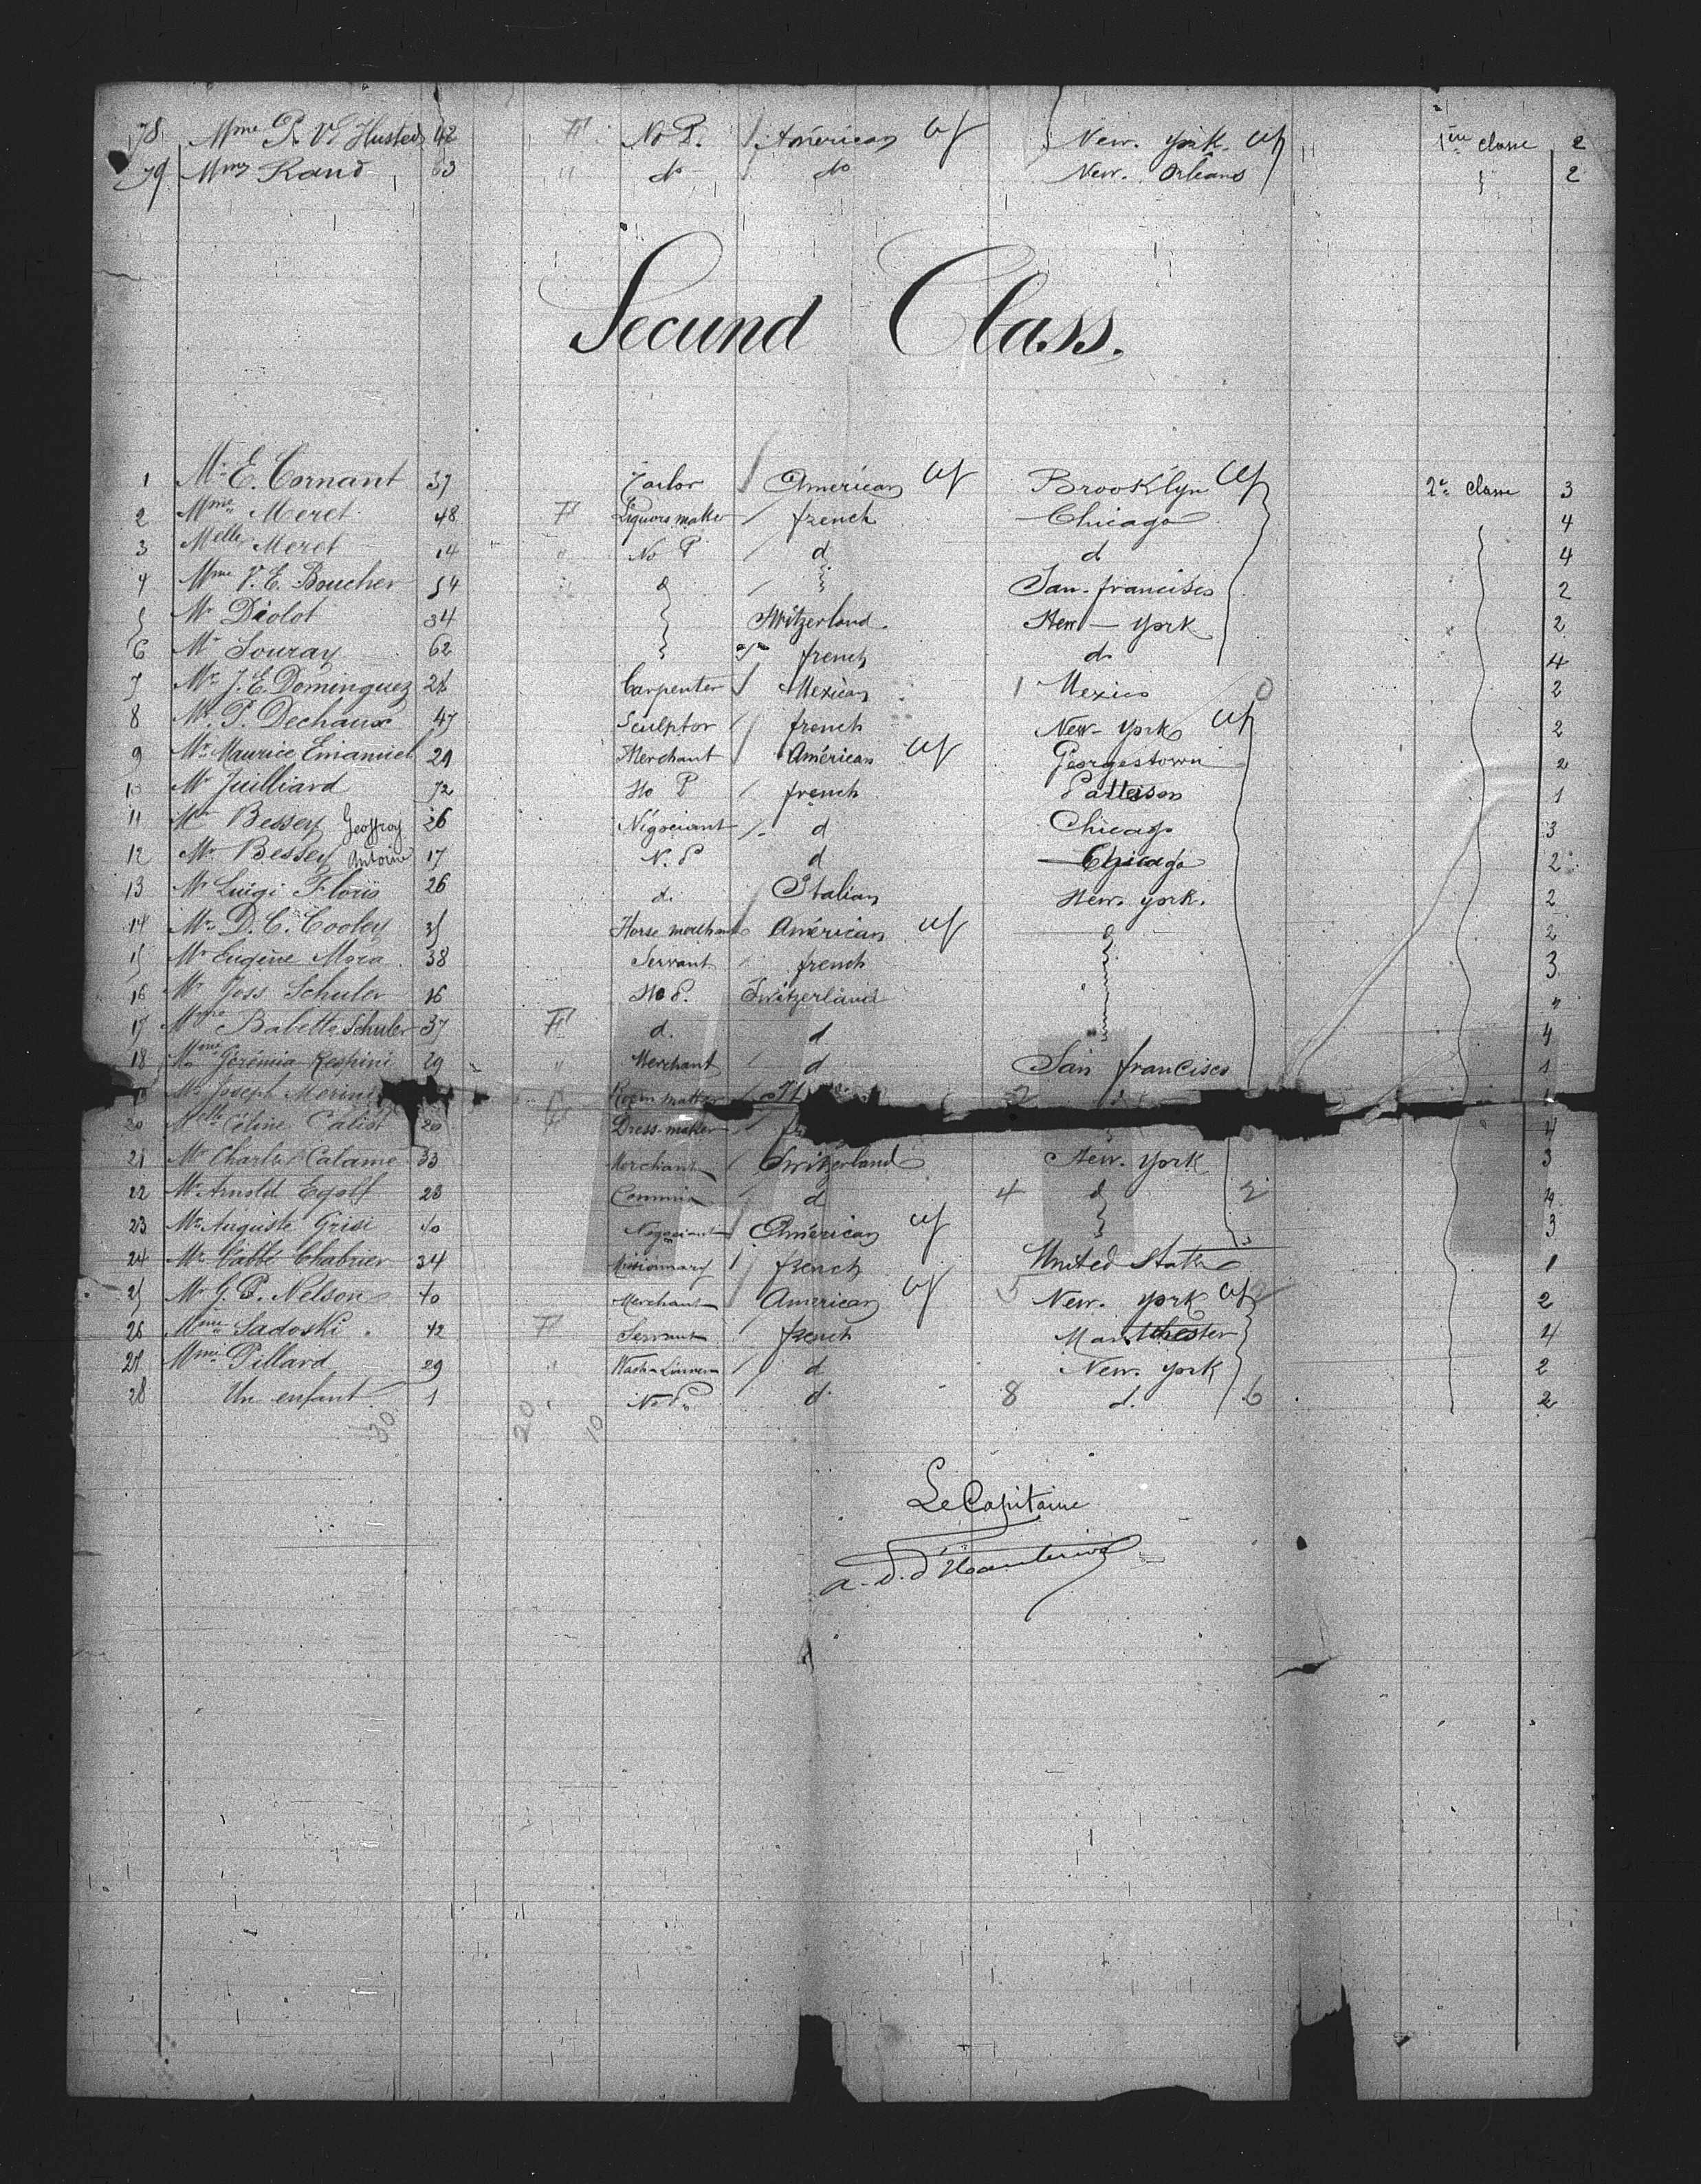 78 Mme P. V. Husted 42 F No P. / American US New-york. US 1ère classe 2
79 Mme Rand 63 " do do New-Orléans 2
Secund Class.
1 Mr E. Cornant 37 Tailor / American US Brooklyn US 2e classe 3
2 Mme Meret 48 F Liquors maker / french Chicago 4
3 Melle Meret 14 " No P / d d 4
4 Mme V. E. Boucher 54 d / San-francisco 2
5 Mr Diolot 34 Switzerland New-york 2
6 Mr Souray 62 french d 4
7 Mr J. E. Dominguez 28 Carpenter / Mexican 1 Mexico 0 2
8 Mr P. Dechaux 47 Sculptor / french New-york US 2
9 Mr Maurice Emanuel 29 Merchant / Américan US Georgestown 2
10 Mr Juilliard 72 No P / french Patterson 1
11 Mr Bessey Geoffroy 26 Négociant / d Chicago 3
12 Mr Bessey Antoine 17 N. P d Chicago 2
13 Mr Luigi Floris 26 d. / Italian New-york. 2
14 Mr D. C. Cooley 35 Horse merchant Américan US d 2
15 Mr Eugène Mora 38 Servant / french 3
16 Mr Joss Schuler 16 No P. Switzerland "
17 Mme Babette Schuler 37 F d. d 4
18 Mme Gérémia Respini 29 " Merchant / d San francisco 1
Mr Joseph Merini Room matter / 2
20 Melle Céline Calist 20 Dress-maker / 4
21 Mr Charles Calame 33 Merchant / Switzerland New-york 3
22 Mr Arnold Egolf 28 Commis / d 4 d 2
23 Mr Auguste Grisi 40 Négociant / Américan US 3
24 Mr l'abbé Chabrier 34 Missionnary / french United State 1
25 Mr G. P. Nelson 40 Merchant / American US 5 New-york US 2
26 Mme Sadoski 42 F Servant / french Manchester 4
27 Mme Pillard 29 " / d New-york 2
28 Un enfant 1 " No P. / d 8 d. 6 2
30 20 10
Le Capitaine